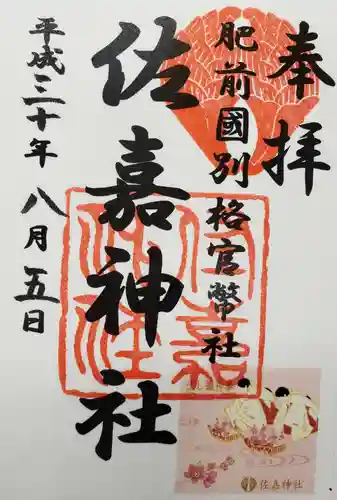 奉拝
肥前國別格官幣社
佐嘉神社
平成三十年八月五日
佐嘉神社